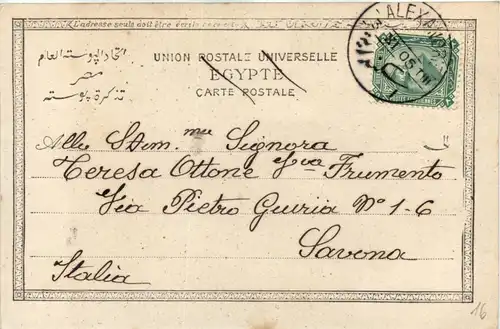 L'adresse seule doit être écrite
اتحاد البوسته العام
مصر
تذكرة بوسته
UNION POSTALE UNIVERSELLE
EGYPTE
CARTE POSTALE
ALEXAND
Alla Stim.ma Signora
Teresa Ottone Frumento
Via Pietro Guiria Nº 1-6
Savona
Italia
16